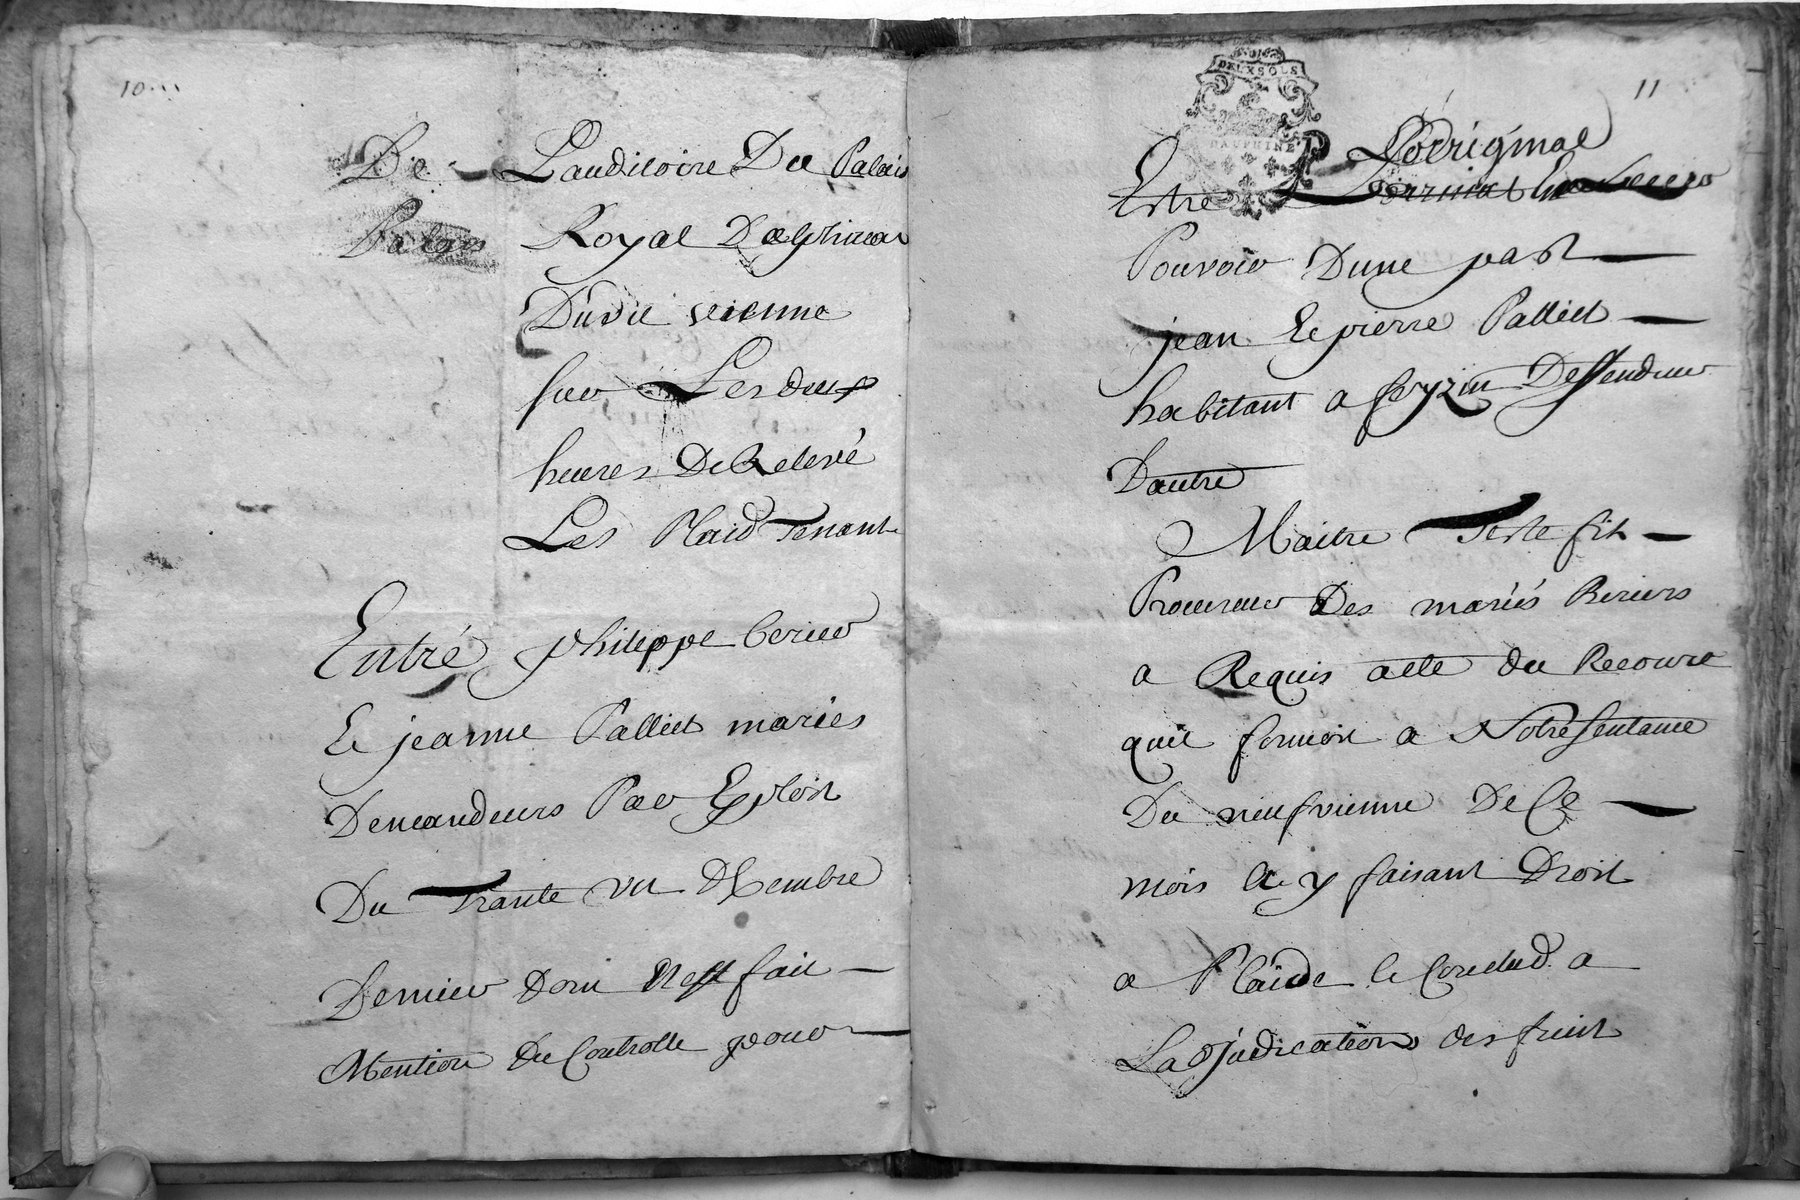 10
De Lauditoire Du Palais
Palais Royal Delphinal
Dudit vienne
sur Les deux
heures De Relevé
Les Plaid Tenant
Entré philippe berier
Et jeanne Palliet mariés
Demandeurs Par Exploit
Du Trante un Dbembre
Dernier Dont Nest fait
Mention Du Controlle pour
11
DEUX SOLS
DAUPHINE
Loriginal
Estre
Pouvoir Dune part
jean Et pierre Palliet
habitant a feyzin Deffendeur
Dautre
Maitre Teste fils
Procureur Des mariés Beriers
a Requis acte du Recours
quil formoit a Notre Sentance
Du neufvieme De Ce
mois Et y faisant Droit
a Plaidé et Conclud a
Ladjudication des fruit